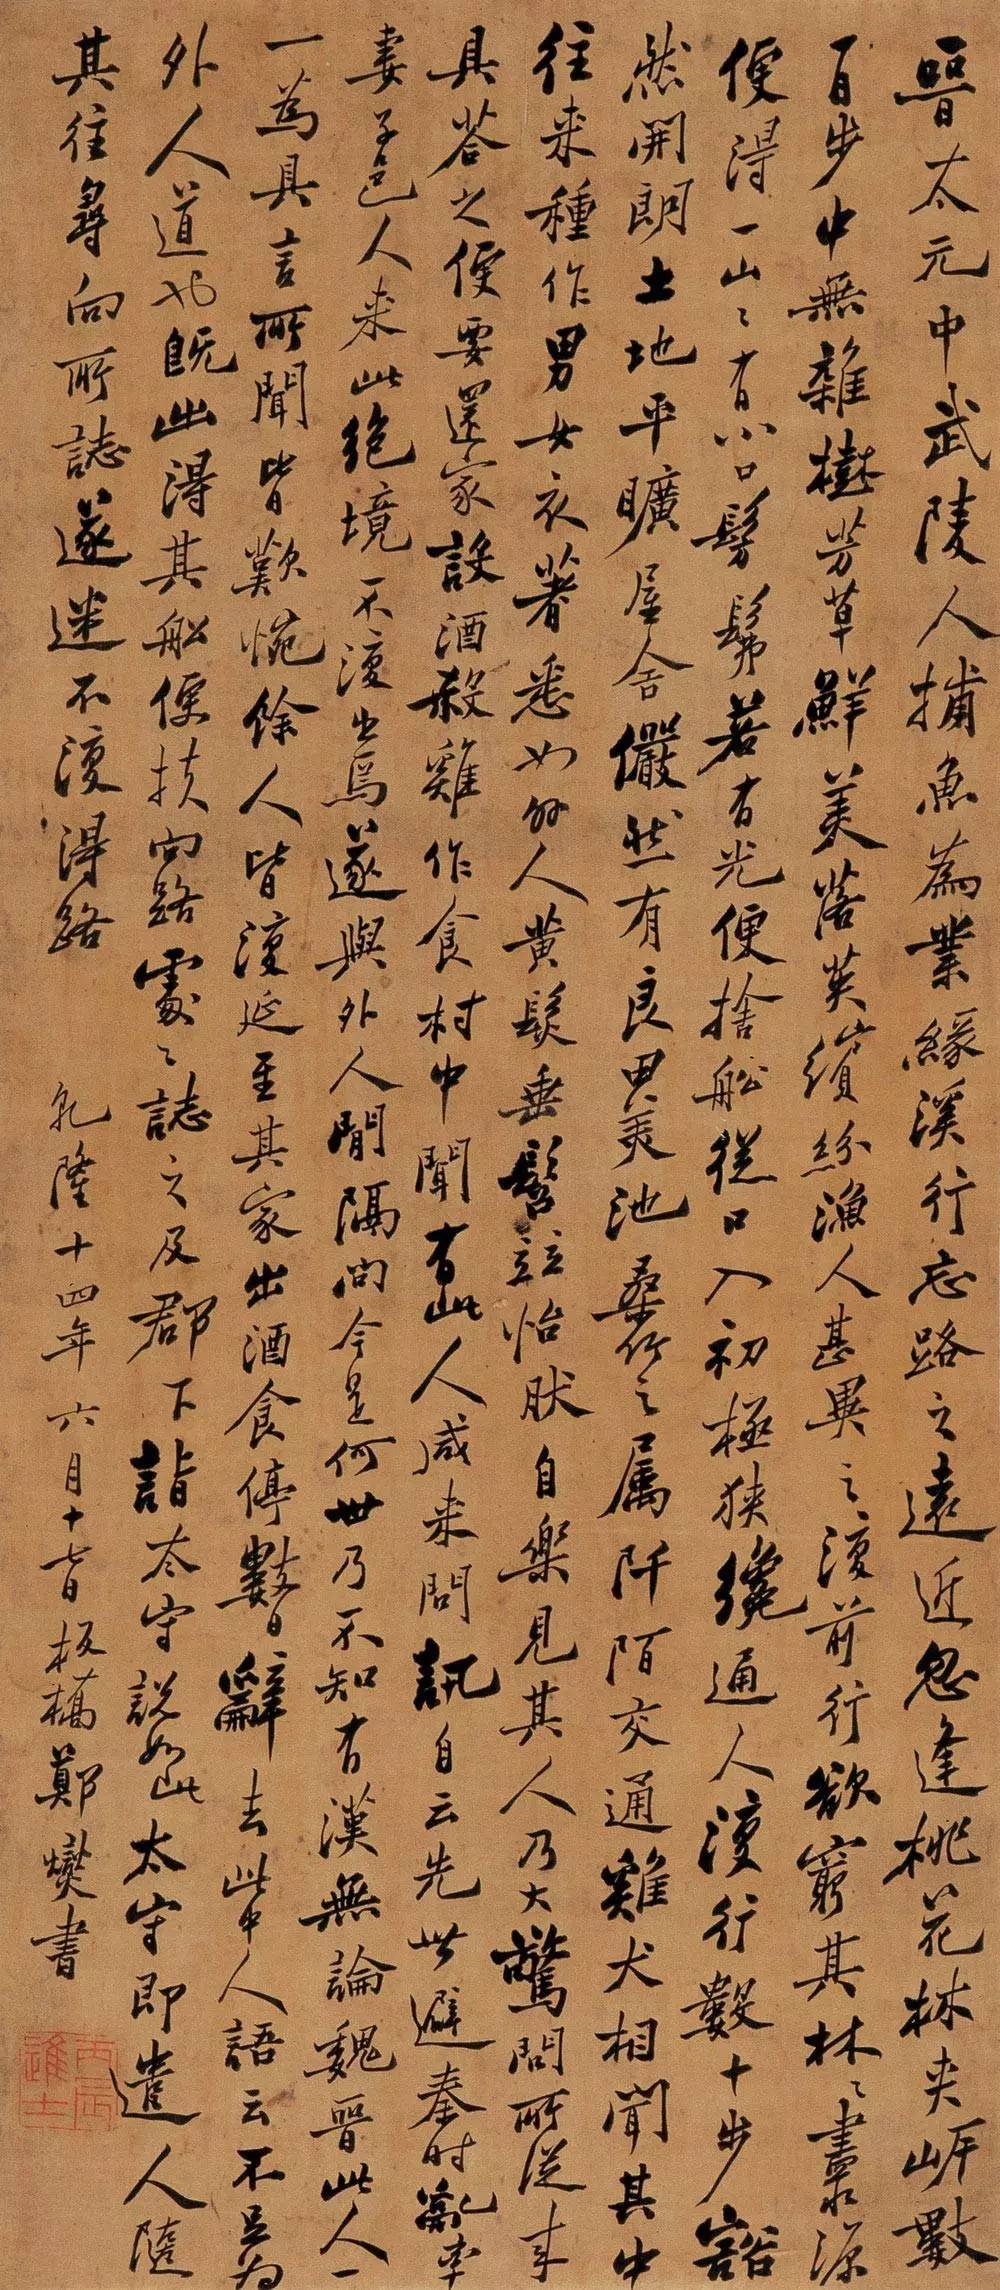 晉太元中武陵人捕魚為業緣溪行忘路之遠近忽逢桃花林夾岸數
百步中無雜樹芳草鮮美落英繽紛漁人甚異之復前行欲窮其林〻盡水源
便得一山〻有小口髣髴若有光便捨船從口入初極狹纔通人復行數十步豁
然開朗土地平曠屋舍儼然有良田美池桑竹之屬阡陌交通雞犬相聞其中
往来種作男女衣著悉如外人黄髮垂髫竝怡然自樂見其人乃大驚問所從来
具荅之便要還家設酒殺雞作食村中聞有此人咸来問訊自云先世避秦時亂率
妻子邑人来此絶境不復出焉遂與外人間隔問今是何世乃不知有漢無論魏晉此人一
一為具言所聞皆歎惋餘人皆復延至其家出酒食停數日辭去此中人語云不足為
外人道也既出得其船便扶向路處〻誌之及郡下詣太守説如此太守即遣人隨
其往尋向所誌遂迷不復得路
乾隆十四年六月十七日板橋鄭燮書
丙辰進士